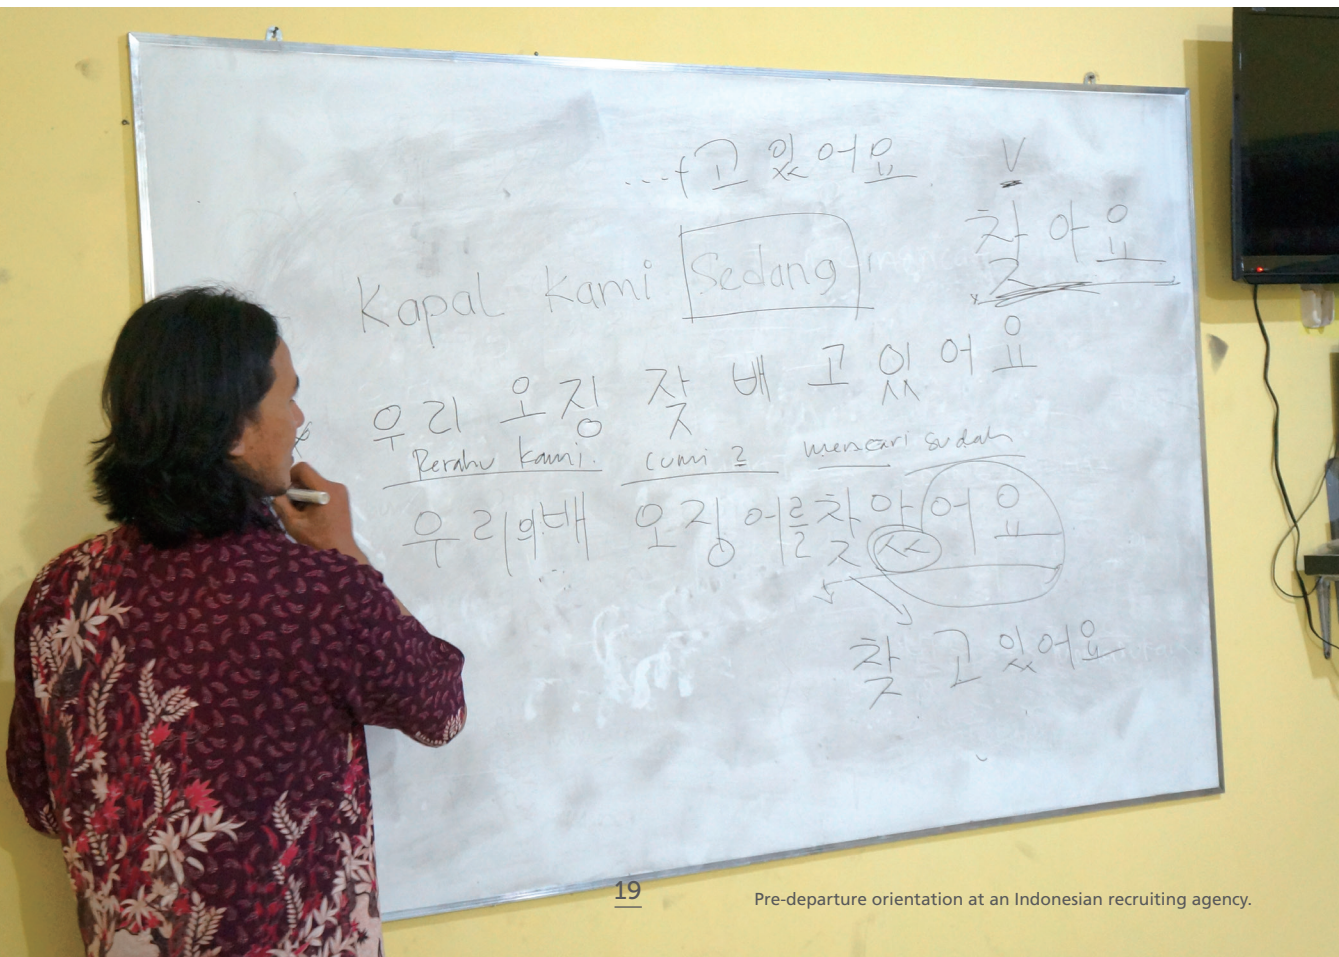 ...+고 있어요
V
찾아요
Kapal Kami Sedang
우리 오징 잦 배 고 있어요
Perahu kami. cumi 2 mencari sudah
우리의배 오징어를찾았어요
찾고있어요
19
Pre-departure orientation at an Indonesian recruiting agency.